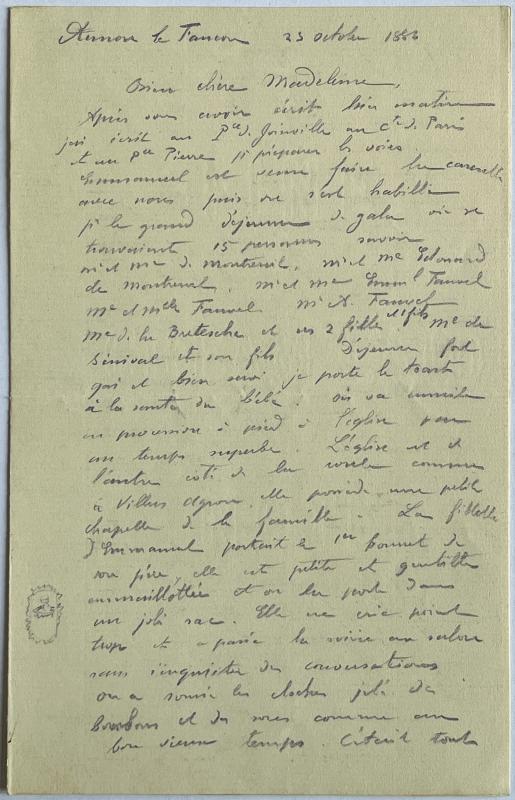 23 octobre 1886
Bien chère Madeleine,
Après vous avoir écrit hier matin
j'ai écrit au Pce de Joinville au Cte de Paris
et au Pierre pr préparer les voies.
Emmanuel est venu faire la causette
avec nous puis on s'est habillé
pr le grand déjeuner de gala où se
trouvaient 15 personnes savoir
mr et me de Montreuil, mr et me Edouard
de Montreuil, mr et me Emml Fauvel
me et melle Fauvel mr A. Fauvel
me de la Bretesche et ses 2 filles et 1 fils me de
Sénival et son fils Déjeuner fort
gai et bien servi je porte le toast
à la santé du bébé. On va ensuite
en procession à pied à l'église par
un temps superbe. L'église est de
l'autre côté de la route comme
à Villers Agron, elle possède une petite
chapelle de la famille. La fillette
d'Emmanuel portait le 1er bonnet de
son père, elle est petite et gentille
emmaillottée et on la porte dans
un joli sac. Elle ne crie point
trop et a passé la soirée au salon
sans s'inquiéter des conversations
on a sonné les cloches jeté des
bonbons et des sous comme au
bon vieux temps. C'était tout